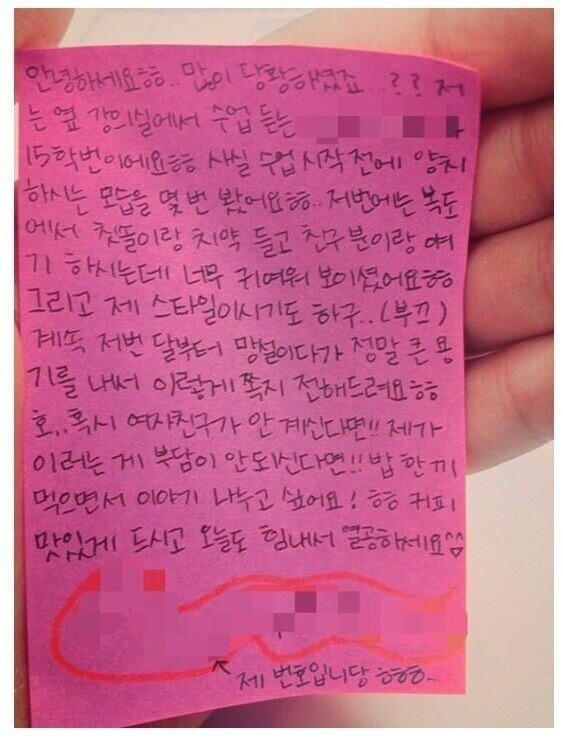 안녕하세요ㅎㅎ.. 많이 당황하셨죠...?? 저
는 옆 강의실에서 수업 듣는
15학번이에요ㅎㅎ 사실 수업 시작 전에 양치
하시는 모습을 몇 번 봤어요ㅎㅎ.. 저번에는 복도
에서 칫똘이랑 치약 들고 친구분이랑 얘
기 하시는데 너무 귀여워 보이셨어요ㅎㅎ
그리고 제 스타일이시기도 하구..(부끄)
계속 저번 달부터 망설이다가 정말 큰 용
기를 내서 이렇게 쪽지 전해드려요ㅎㅎ
호,,혹시 여자친구가 안 계신다면!! 제가
이러는 게 부담이 안되신다면!! 밥 한 끼
먹으면서 이야기 나누고 싶어요! ㅎㅎ 커피
맛있게 드시고 오늘도 힘내서 열공하세요^^
제 번호입니당 ㅎㅎㅎ..